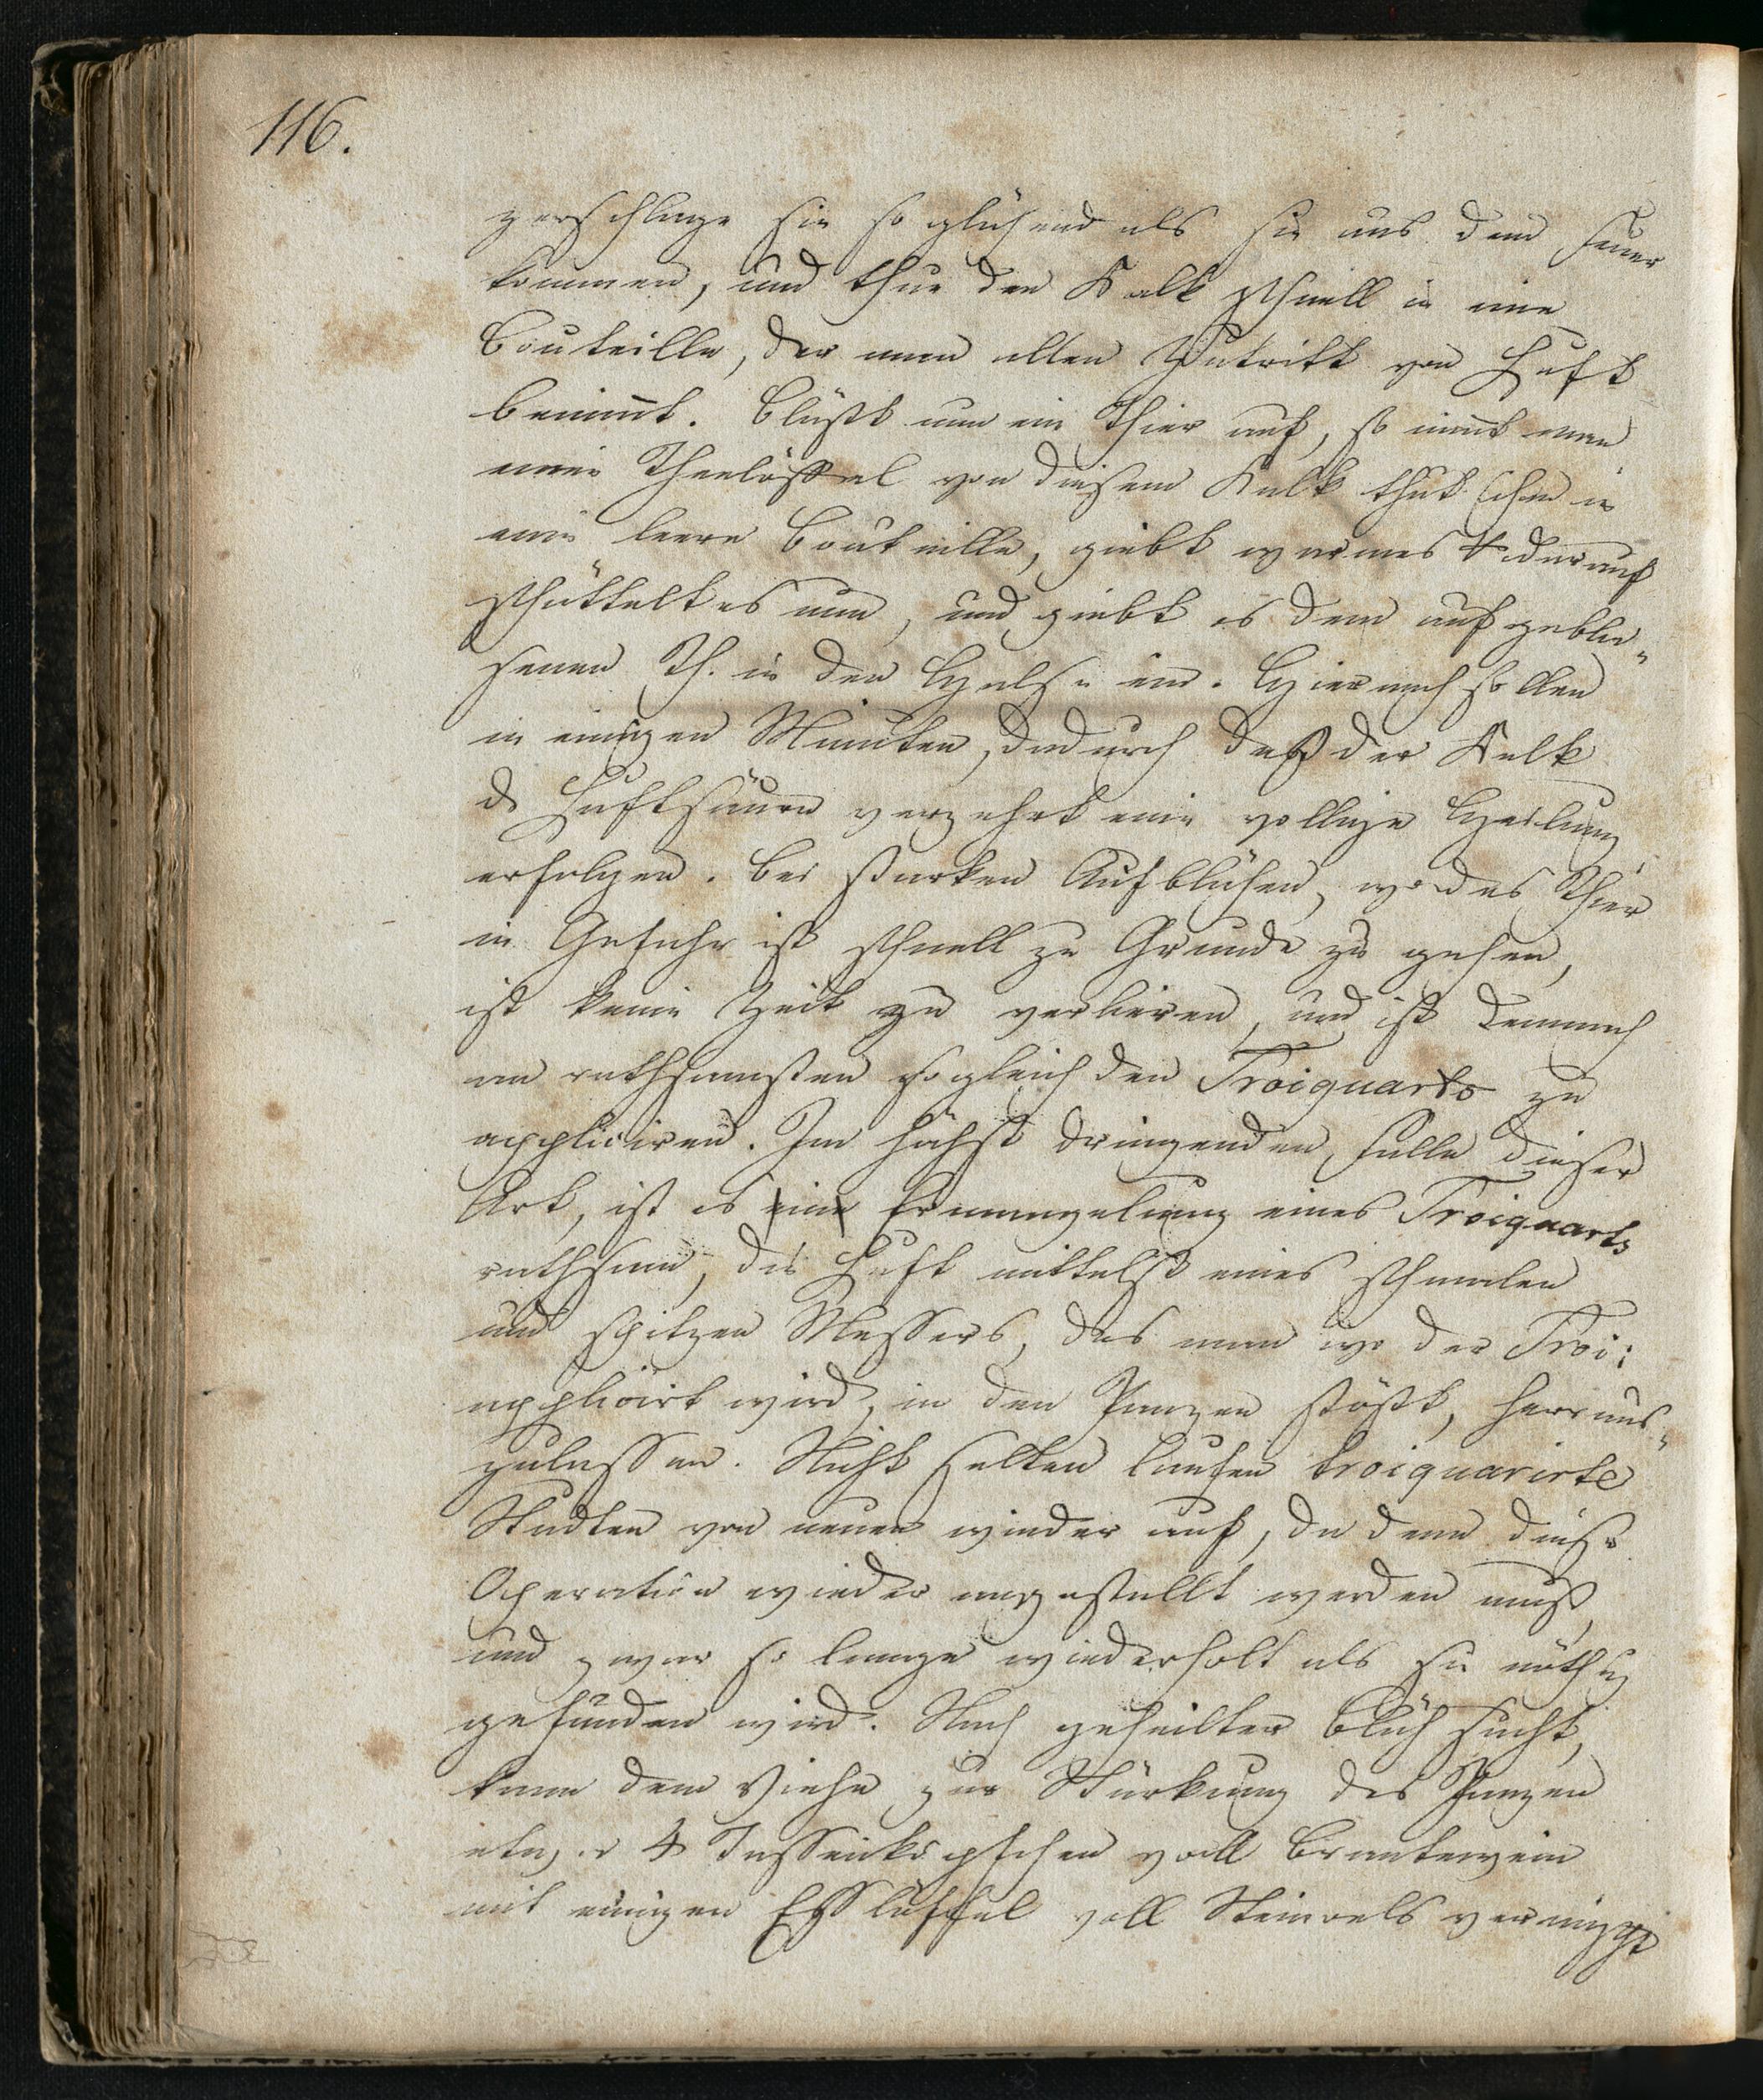 116.
zerschlage sie so glühend als sie aus dem Feuer
kommen, und thue den Kalk schnell in eine
Bouteille, der man allen Zutritt von Luft
benimmt. Bläßt nun ein Thier auf, so nimmt man
einen Theelöffel von diesem Kalk thut ihn in
eine leere Bouteille, giebt warmes darauf
schüttelt es um, und giebt es dem aufgebla„
senen Th. in den Hals ein. Hiernach sollen
in einigen Minuten, dadurch daß der Kalk
d Luftsäure verzehrt eine völlige Heilung
erfolgen. Bei starken Aufblähen, wo das Thier
in Gefahr ist schnell zu Grunde zu gehen,
ist keine Zeit zu verlieren, und ist demnach
am rathsamsten sogleich den Troiquarts zu
appliciren. Im höchst dringenden Falle dieser
Art, ist es in Ermangelung eines Troiquarts
rathsam, die Luft mittelst eines schmalen
und spitzen Messers, das man wo der Troi:
applicirt wird, in den Panzen stößt, heraus„
zulassen. Nicht selten laufen troiquarirte
Stücken von neuen wieder auf, da denn diese
Operation wieder angestellt werden muß
und zwar so lange wiederholt als sie nöthig
gefunden wird. Nach geheilter Blähsucht,
kann dem Viehe zur Stärkung des Panzen
4 Tassenköpfchen voll Brantewein
mit einigen Eßlöffel voll Steinoels vermischt